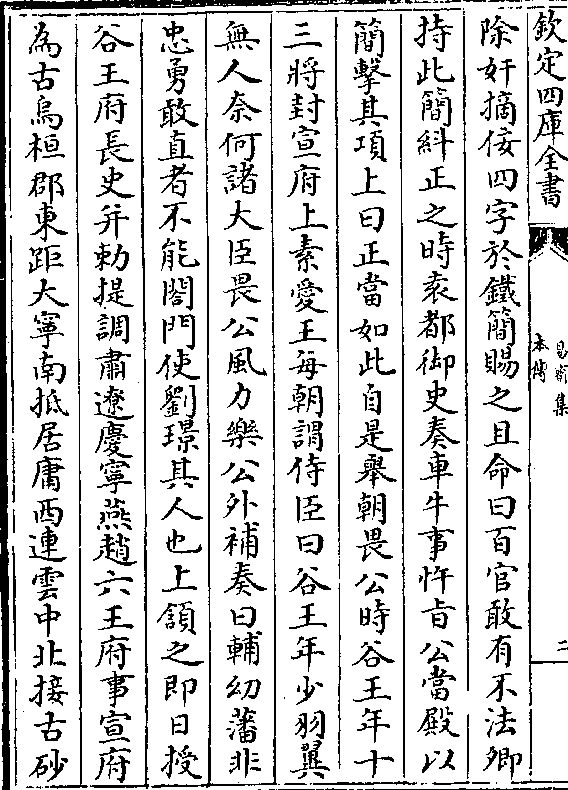 欽定四庫全書
易齋集
本傳
二
除奸摘佞四字於鐵簡賜之且命曰百官敢有不法卿
持此簡糾正之時袁都御史奏車牛事忤旨公當殿以
簡擊其項上曰正當如此自是舉朝畏公時谷王年十
三將封宣府上素愛王每朝謂侍臣曰谷王年少羽翼
無人奈何諸大臣畏公風力樂公外補奏曰輔幼藩非
忠勇敢直者不能閤門使劉璟其人也上頷之即日授
谷王府長史并勅提調肅遼慶寧燕趙六王府事宣府
為古烏桓郡東距大寧南抵居庸西連雲中北接古砂